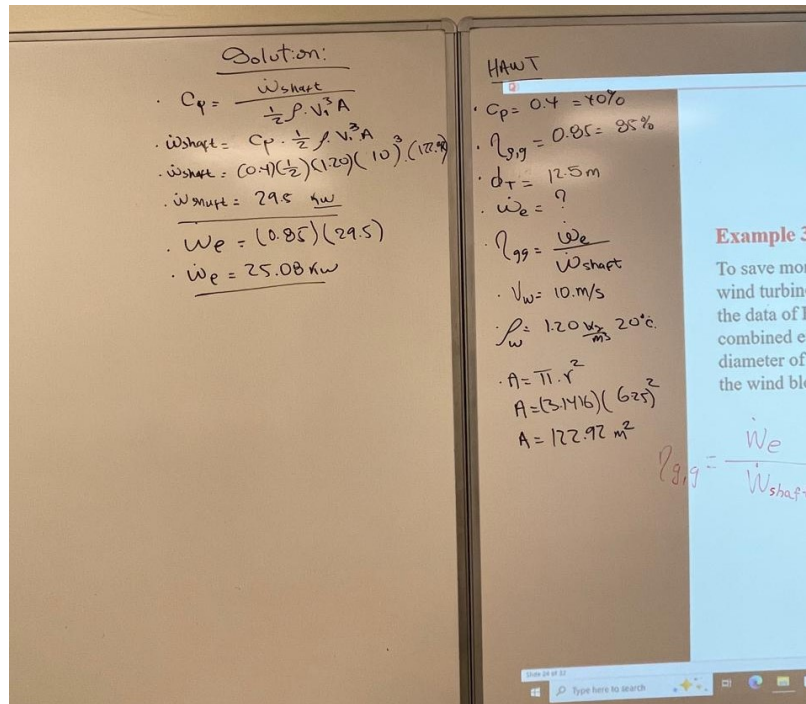 Solution:
· Cp = Ẇshaft / ½ ρ·V₁³A
· Ẇshaft = Cp · ½ ρ·V₁³A
· Ẇshaft = (0.4)(½)(1.20)(10)³·(122.92)
· Ẇshaft = 29.5 Kw
· Ẇe = (0.85)(29.5)
· Ẇe = 25.08 Kw
HAWT
· Cp = 0.4 = 40%
· ηg,g = 0.85 = 85%
· dT = 12.5 m
· Ẇe = ?
· ηgg = Ẇe / Ẇshaft
· Vw = 10.m/s
· ρw = 1.20 kg/m³ 20°c.
· A = π·r²
A = (3.1416)(6.25)²
A = 122.92 m²
Example 3
To save mo
wind turbin
the data of
combined e
diameter of
the wind bl
ηg,g = Ẇe / Ẇshaft
Slide 24 of 32
Type here to search